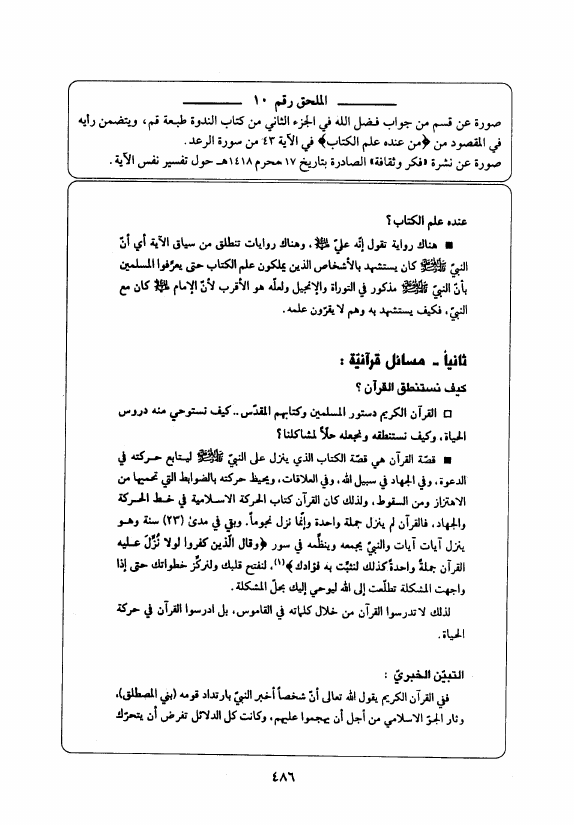 الملحق رقم ١٠
صورة عن قسم من جواب فضل الله في الجزء الثاني من كتاب الندوة طبعة قم، ويتضمن رأيه
في المقصود من ﴿من عنده علم الكتاب﴾ في الآية ٤٣ من سورة الرعد.
صورة عن نشرة «فكر وثقافة» الصادرة بتاريخ ١٧ محرم ١٤١٨هـ حول تفسير نفس الآية.
عنده علم الكتاب؟
■ هناك رواية تقول إنّه عليّ ﷺ، وهناك روايات تنطلق من سياق الآية أي أنّ
النبيّ ﷺ كان يستشهد بالأشخاص الذين يملكون علم الكتاب حتى يعرّفوا المسلمين
بأنّ النبيّ ﷺ مذكور في التوراة والإنجيل ولعلّه هو الأقرب لأنّ الإمام كان مع
النبيّ، فكيف يستشهد به وهم لا يقرّون علمه.
ثانياً - مسائل قرآنيّة :
كيف نستنطق القرآن ؟
□ القرآن الكريم دستور المسلمين وكتابهم المقدّس .. كيف نستوحي منه دروس
الحياة، وكيف نستنطقه ونجعله حلاً لمشاكلنا؟
■ قصّة القرآن هي قصّة الكتاب الذي ينزل على النبيّ ﷺ ليتابع حركته في
الدعوة، وفي الجهاد في سبيل الله، وفي العلاقات، ويحيط حركته بالضوابط التي تحميها من
الاهتزاز ومن السقوط، ولذلك كان القرآن كتاب الحركة الاسلامية في خط الحركة
والجهاد، فالقرآن لم ينزل جملة واحدة وإنّما نزل نجوماً. وبقي في مدىٰ (٢٣) سنة وهو
ينزل آيات آيات والنبيّ يجمعه وينظّمه في سور ﴿وقال الّذين كفروا لولا نُزِّلَ عليه
القرآن جملةً واحدةً كذلك لنثبِّت به فؤادك﴾(١)، لنفتح قلبك ولنركِّز خطواتك حتى إذا
واجهت المشكلة تطلّعت إلى الله ليوحي إليك بحلّ المشكلة.
لذلك لا تدرسوا القرآن من خلال كلماته في القاموس، بل ادرسوا القرآن في حركة
الحياة.
التبيّن الخبريّ :
ففي القرآن الكريم يقول الله تعالى أنّ شخصاً أخبر النبيّ بارتداد قومه (بني المصطلق)،
وثار الجوّ الاسلامي من أجل أن يهجموا عليهم، وكانت كل الدلائل تفرض أن يتحرّك
٤٨٦